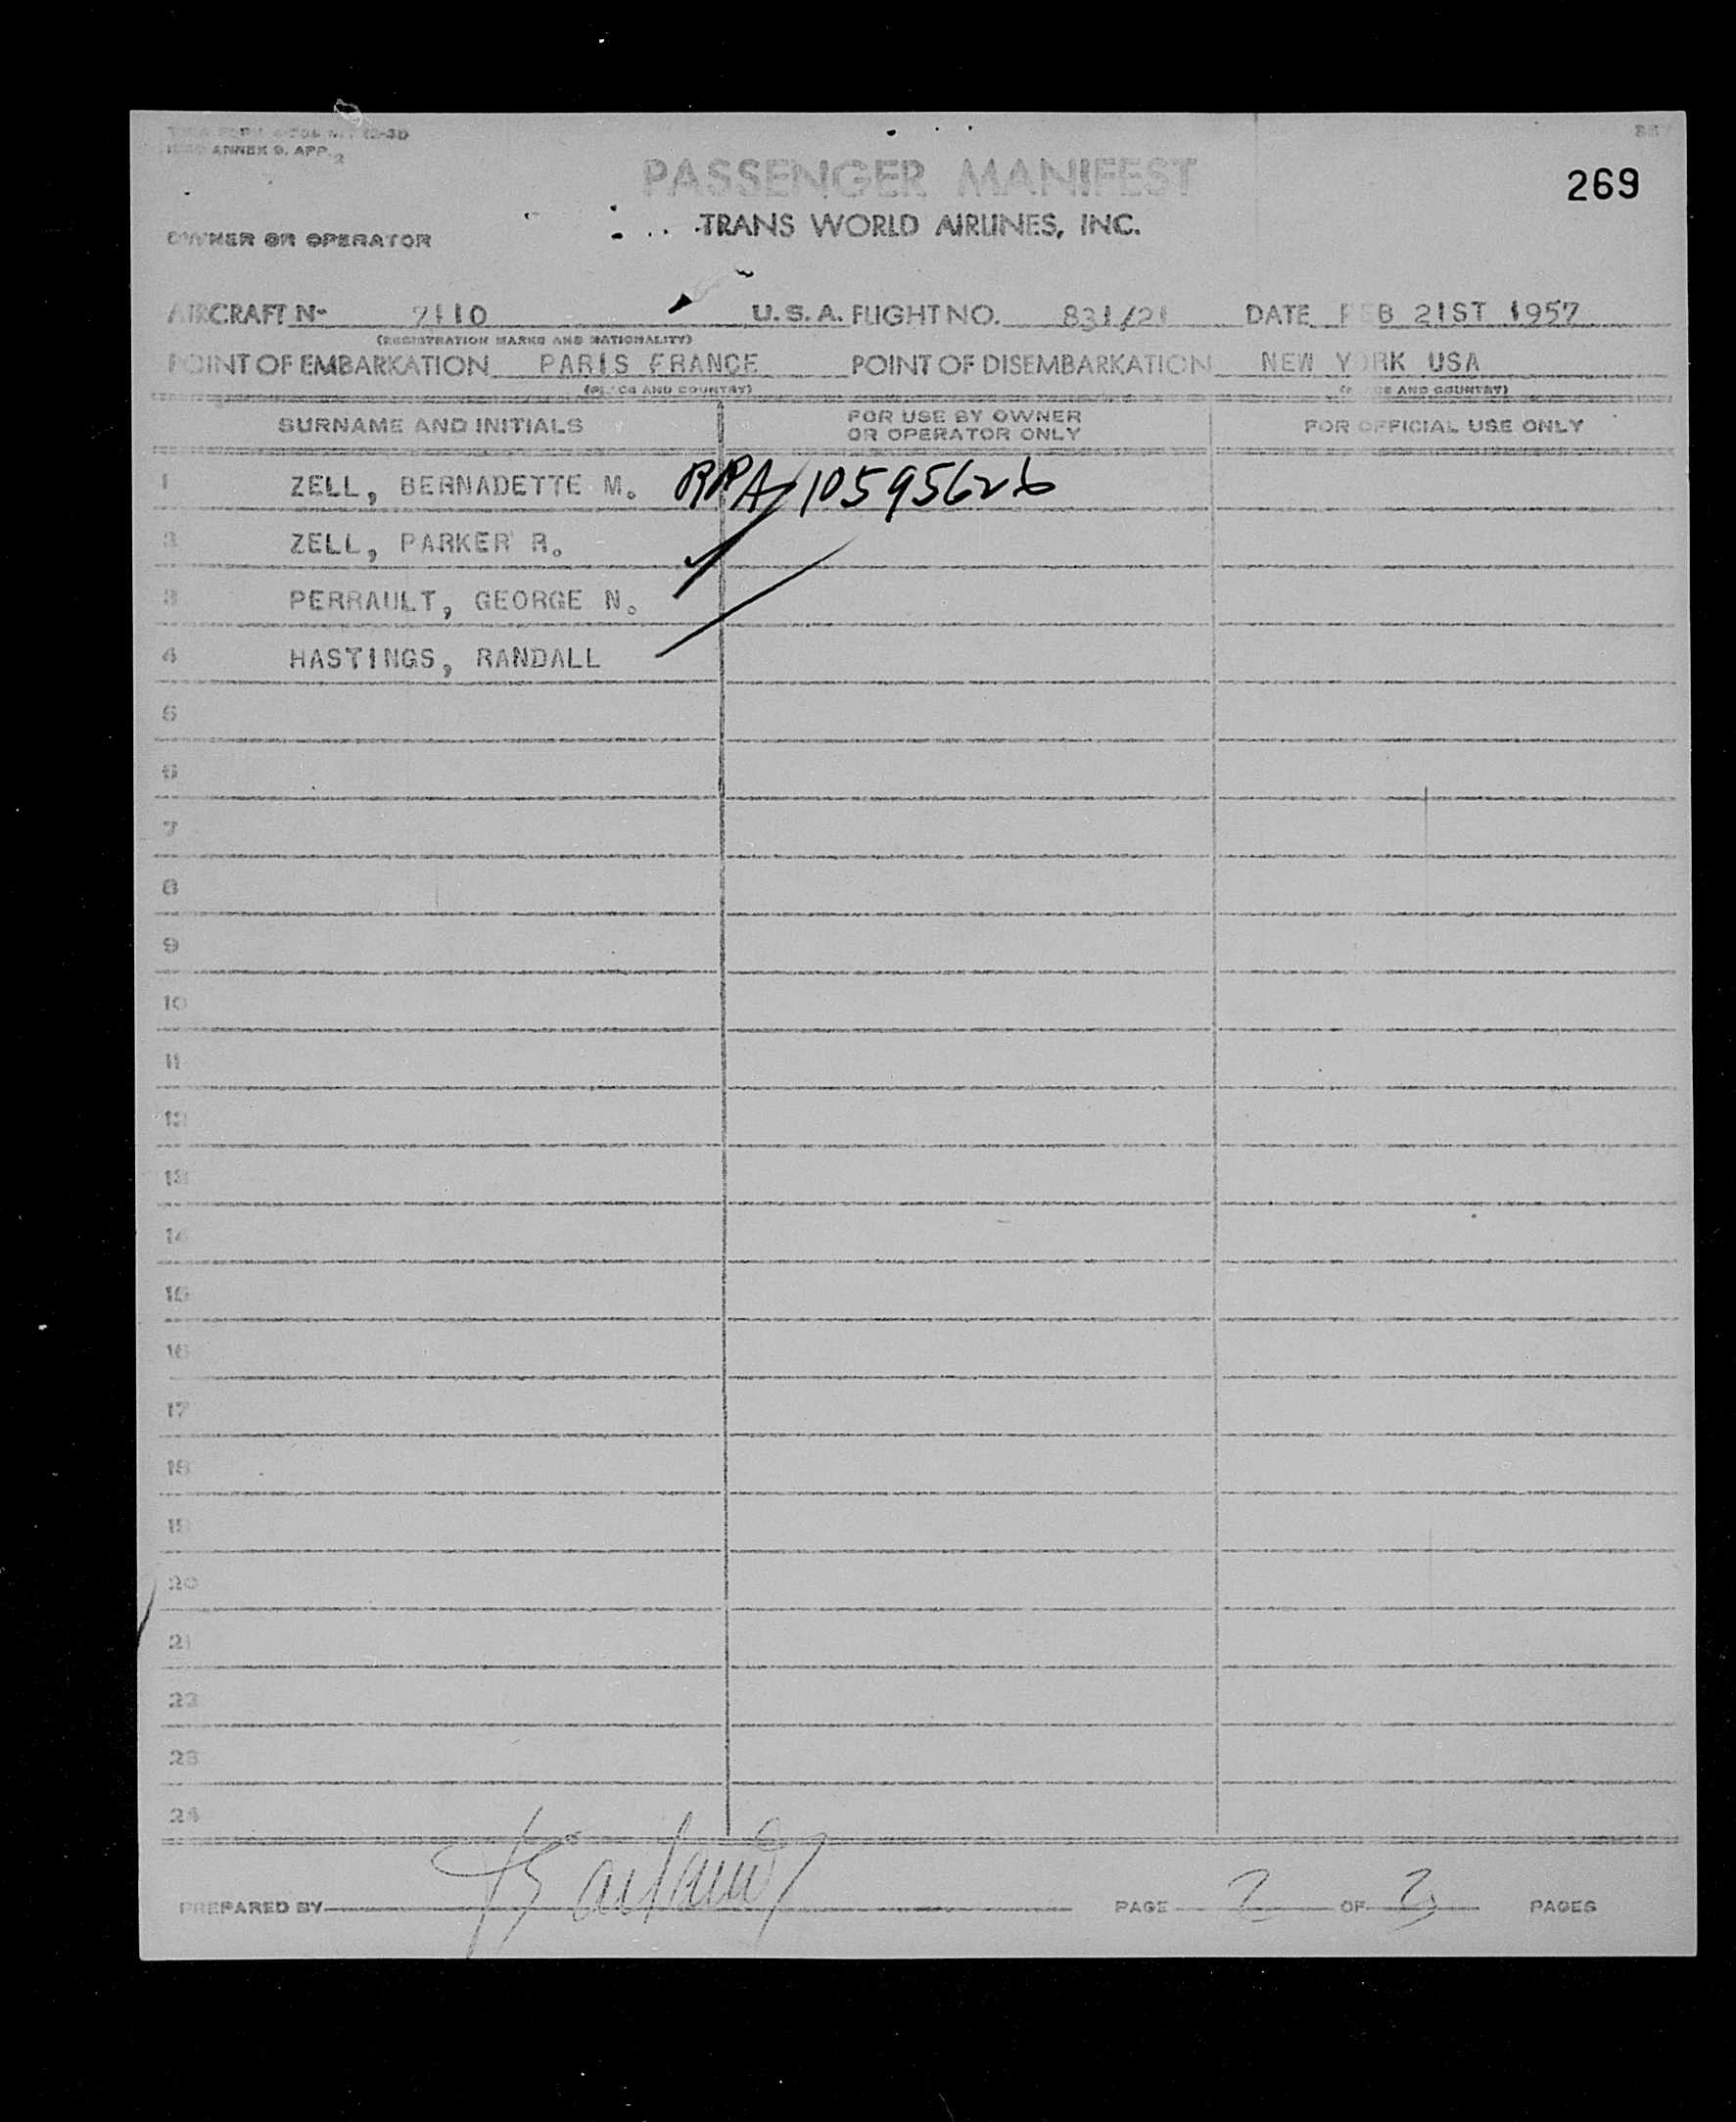 ANNEX 9. APP. 2
PASSENGER MANIFEST
269
OWNER OR OPERATOR TRANS WORLD AIRLINES, INC.
AIRCRAFT N- 7110 U. S. A. FLIGHT NO. 831/21 DATE FEB 21ST 1957
(REGISTRATION MARKS AND NATIONALITY)
POINT OF EMBARKATION PARIS FRANCE POINT OF DISEMBARKATION NEW YORK USA
(PLACE AND COUNTRY) (PLACE AND COUNTRY)
SURNAME AND INITIALS FOR USE BY OWNER OR OPERATOR ONLY FOR OFFICIAL USE ONLY
1 ZELL, BERNADETTE M. RPA 10595626
2 ZELL, PARKER R.
3 PERRAULT, GEORGE N.
4 HASTINGS, RANDALL
5
6
7
8
9
10
11
12
13
14
15
16
17
18
19
20
21
22
23
24
PREPARED BY PAGE 2 OF 3 PAGES